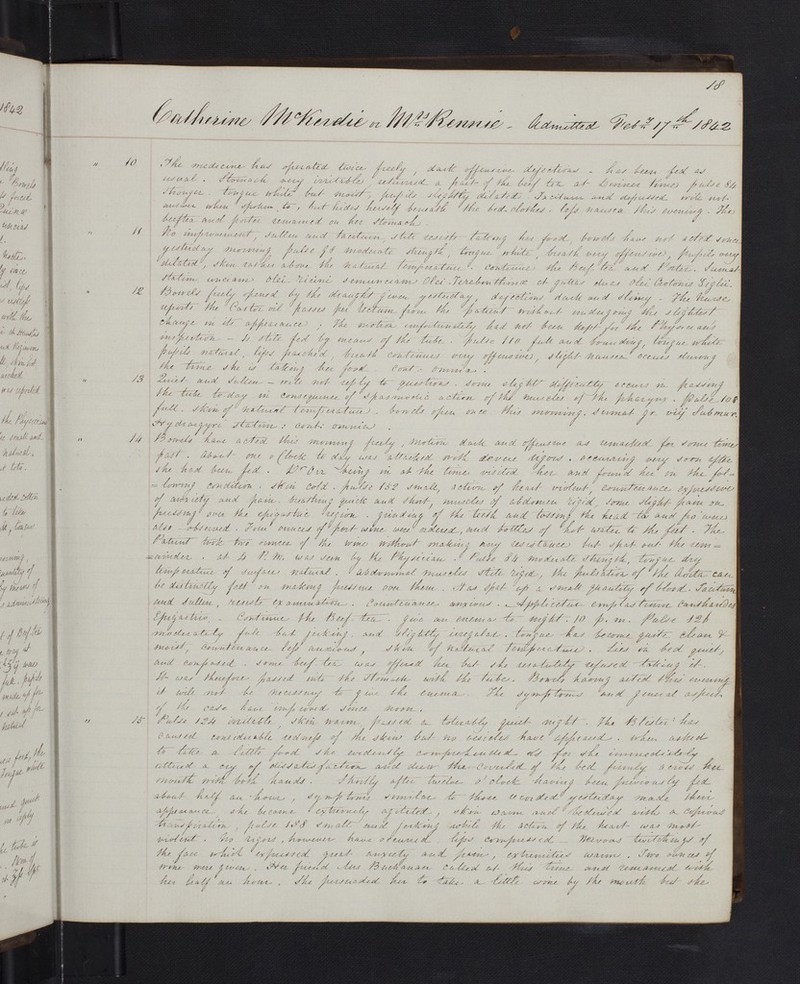 18
Catherine McKerdie or Mrs Rennie - Admitted Feby 17th 1842
" 10 The medicine has operated twice freely, dark offensive dejections - has been fed as
usual. Stomach very irritable, returned a part of the beef tea at Dinner time, pulse 84
stronger. tongue white but moist, pupils slightly dilated. Taciturn and depressed will not
answer when spoken to, but hides herself beneath the bed clothes. less nausea this evening. The
beeftea and water remained on her stomach.
" 11 No improvement, sullen and taciturn, still resists taking her food, bowels have not acted since
yesterday morning pulse 98 moderate strength, tongue white, breath very offensive, Pupils very
dilated, skin rather above the natural temperature. continue the Beef tea and Water. Sumat
statim unciam olei ricini semunciam Olei Terebinthinae et guttas duas olei Crotonis Tiglii.
" 12 Bowels freely opened by the draught given yesterday, dejections dark and slimy. The Nurse
reports the Castor oil passes per rectum from the patient without undergoing the slightest
change in its appearance; the motion unfortunately had not been kept for the Physician's
inspection - is still fed by means of the tube. pulse 110 full and bounding, tongue white
pupils natural, lips parched, breath continues very offensive, slight nausea occurs during
the times she is taking her food. Cont. omnia.
" 13 Quiet and sullen - will not reply to questions. some slight difficulty occurs in passing
the tube today in consequence of spasmodic action of the muscles of the pharynx. Pulse 108
full. skin of natural temperature. bowels open once this morning. Sumat gr. viij Submur.
Hydrargyri statim: contr omnia.
" 14 Bowels have acted this morning freely, motion dark and offensive as remarked for some time
past. about one o'Clock to day was attacked with severe rigors. occurring very soon after
she had been fed. Dr Orr being in at the time visited her and found her in the fol=
=lowing condition. skin cold. pulse 132 small, action of heart violent, countenance expressive
of anxiety and pain. breathing quick and short, muscles of abdomen rigid, some slight pain on
pressing over the epigastric region. grinding of the teeth and tossing the head to and fro were
also observed. Four ounces of port wine were ordered, and bottles of hot water to the feet. The
Patient took two ounces of the wine without making any resistance but spat out the rem=
=ainder. at 4 P.M. was seen by the Physician. Pulse 84 moderate strength, tongue dry
temperature of surface natural. abdominal muscles still rigid, the pulsation of the Aorta can
be distinctly felt on making pressure over them. Has spit up a small quantity of blood. Taciturn
and sullen, resists examination. Countenance anxious. Applicetur emplastrum Cantharides
Epigastrio. Continue the Beef tea. give an enema to night. 10 p.m. Pulse 126
moderately full but jerking and slightly irregular. tongue has become quite clean &
moist, countenance less anxious, skin of natural temperature. Lies in bed quiet,
and composed. some beef tea was offered her but she resolutely refused taking it.
It was therefore passed into the stomach with the tube. Bowels having acted this evening
it will not be necessary to give the enema. The symptoms and general aspect
of the case have improved since noon.
" 15 Pulse 124 irritable, skin warm, passed a tolerably quiet night. The Blister has
caused considerable redness of the skin but no vesicles have appeared. when asked
to take a little food she evidently comprehended as for she immediately
uttered a cry of dissatisfaction and drew the coverlid of the bed firmly across her
mouth with both hands. Shortly after twelve o'clock having been previously fed
about half an hour, symptoms similar to those recorded yesterday made their
appearance. she became extremely agitated, skin warm and bedewed with a copious
transpiration, pulse 138 small and jerking while the action of the heart was most
violent. No rigors, however have occurred. lips compressed - Nervous twitchings of
the face which expressed great anxiety and pain, extremities warm. Two ounces of
wine were given. Her friend Mrs Buchanan called at this time and remained with
her half an hour. She persuaded her to take a little wine by the mouth but she